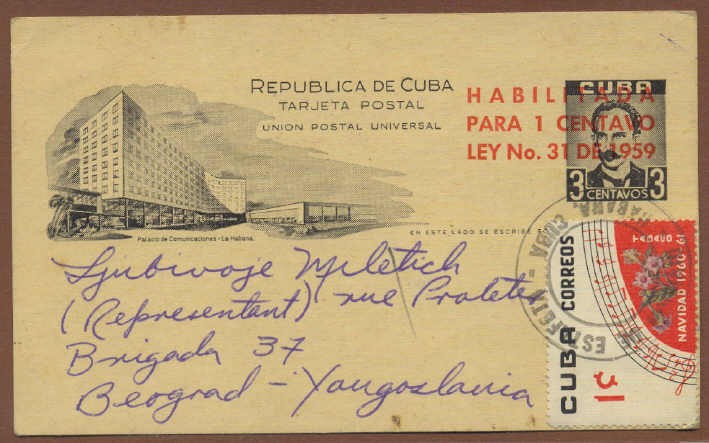 REPUBLICA DE CUBA
TARJETA POSTAL
UNION POSTAL UNIVERSAL
HABILITADA
PARA 1 CENTAVO
LEY No. 31 DE 1959
CUBA
3 CENTAVOS 3
Palacio de Comunicaciones - La Habana.
EN ESTE LADO SE ESCRIBE
Ljubivoje Miletich
(Representant) rue Proleter
Brigada 37
Beograd - Yougoslavia
HABANA, CUBA
ESTAFETA
CUBA CORREOS
NAVIDAD 1960-61
1¢